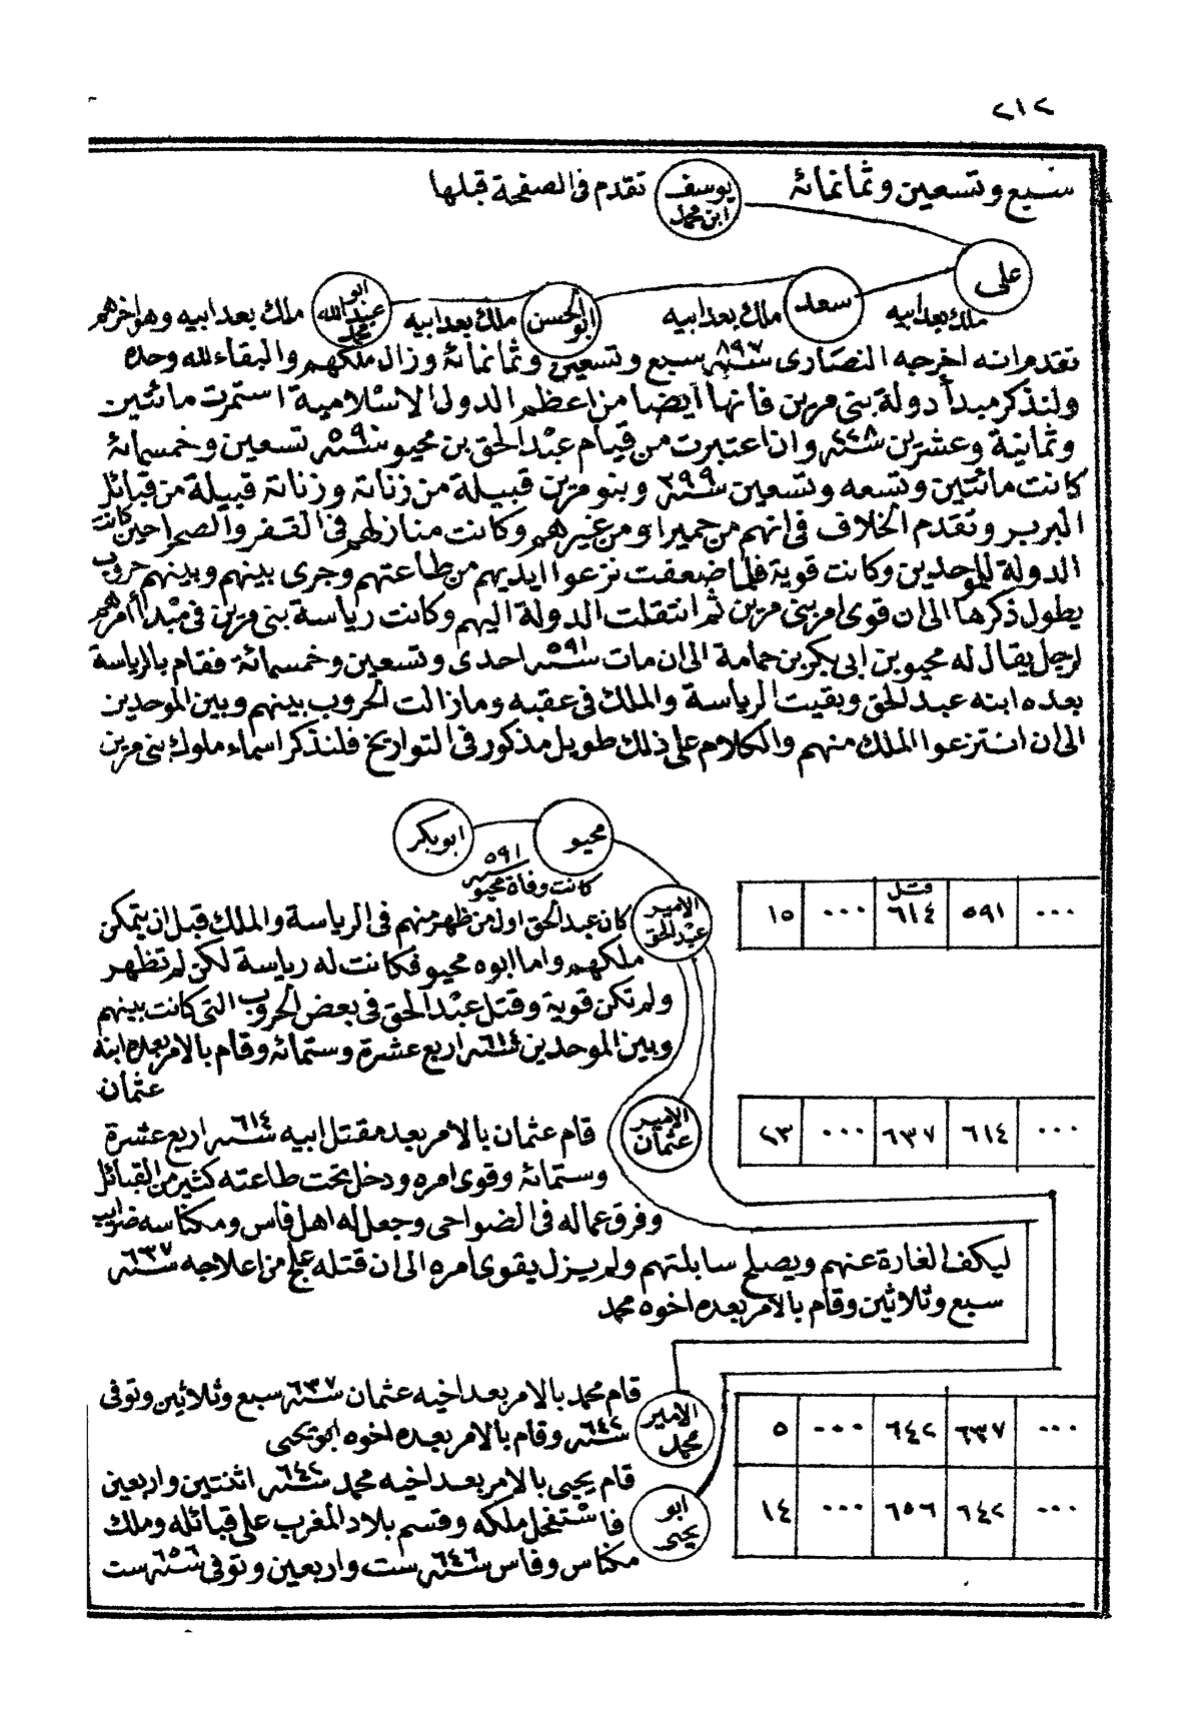 ٢١٢
سبع وتسعين وثمانمائة
يوسف ابن محمد
تقدم فى الصفحة قبلها
على
ملك بعد ابيه
سعد
ملك بعد ابيه
ابو الحسن
ملك بعد ابيه
ابو عبد الله محمد
ملك بعد ابيه وهو اخرهم
تقدم انه اخرجه النصارى سنة ٨٩٧ سبع وتسعين وثمانمائة وزال ملكهم والبقاء لله وحده
ولنذكر مبدأ دولة بنى مرين فانها ايضا من اعظم الدول الاسلامية استمرت مائتين
وثمانية وعشرين سنة ٢٢٨ وان اعتبرت من قيام عبد الحق بن محيو سنة ٥٩٠ تسعين وخمسمائة
كانت مائتين وتسعه وتسعين سنة ٢٩٩ وبنو مرين قبيلة من زناتة وزناتة قبيلة من قبائل
البربر وتقدم الخلاف فى انهم من حمير او من غيرهم وكانت منازلهم فى القفر والصحرا حين كانت
الدولة للموحدين وكانت قوية فلما ضعفت نزعوا ايديهم من طاعتهم وجرى بينهم وبينهم حروب
يطول ذكرها الى ان قوى امر بنى مرين ثم انتقلت الدولة اليهم وكانت رياسة بنى مرين فى مبدأ امرهم
لرجل يقال له محيو بن ابى بكر بن حمامة الى ان مات سنة ٥٩١ احدى وتسعين وخمسمائة فقام بالرياسة
بعده ابنه عبد الحق وبقيت الرياسة والملك فى عقبه وما زالت الحروب بينهم وبين الموحدين
الى ان انتزعوا الملك منهم والكلام على ذلك طويل مذكور فى التواريخ فلنذكر اسماء ملوك بنى مرين
محيو
ابو بكر
٥٩١
كانت وفاة محيو سنة
الامير عبد الحق
... ٥٩١ قتل ٦١٤ ... ١٥
كان عبد الحق اول من ظهر منهم فى الرياسة والملك قبل ان يتمكن
ملكهم واما ابوه محيو فكانت له رياسة لكن لم تظهر
ولم تكن قوية وقتل عبد الحق فى بعض الحروب التى كانت بينهم
وبين الموحدين سنة ٦١٤ اربع عشرة وستمائة وقام بالامر بعده ابنه
عثمان
الامير عثمان
... ٦١٤ ٦٣٧ ... ٢٣
قام عثمان بالامر بعد مقتل ابيه سنة ٦١٤ اربع عشرة
وستمائة وقوى امره ودخل تحت طاعته كثير من القبائل
وفرق عماله فى الضواحى وجعل له اهل فاس ومكناسه ضرايب
ليكف الغارة عنهم ويصلح سابلتهم ولم يزل يقوى امره الى ان قتله علج من اعلاجه سنة ٦٣٧
سبع وثلاثين وقام بالامر بعده اخوه محمد
الامير محمد
... ٦٣٧ ٦٤٢ ... ٥
قام محمد بالامر بعد اخيه عثمان سنة ٦٣٧ سبع وثلاثين وتوفى
سنة ٦٤٢ وقام بالامر بعده اخوه ابو يحيى
ابو يحيى
... ٦٤٢ ٦٥٦ ... ١٤
قام يحيى بالامر بعد اخيه محمد سنة ٦٤٢ اثنتين واربعين
فاستفحل ملكه وقسم بلاد المغرب على قبائله وملك
مكناس وفاس سنة ٦٤٦ ست واربعين وتوفى سنة ٦٥٦ ست